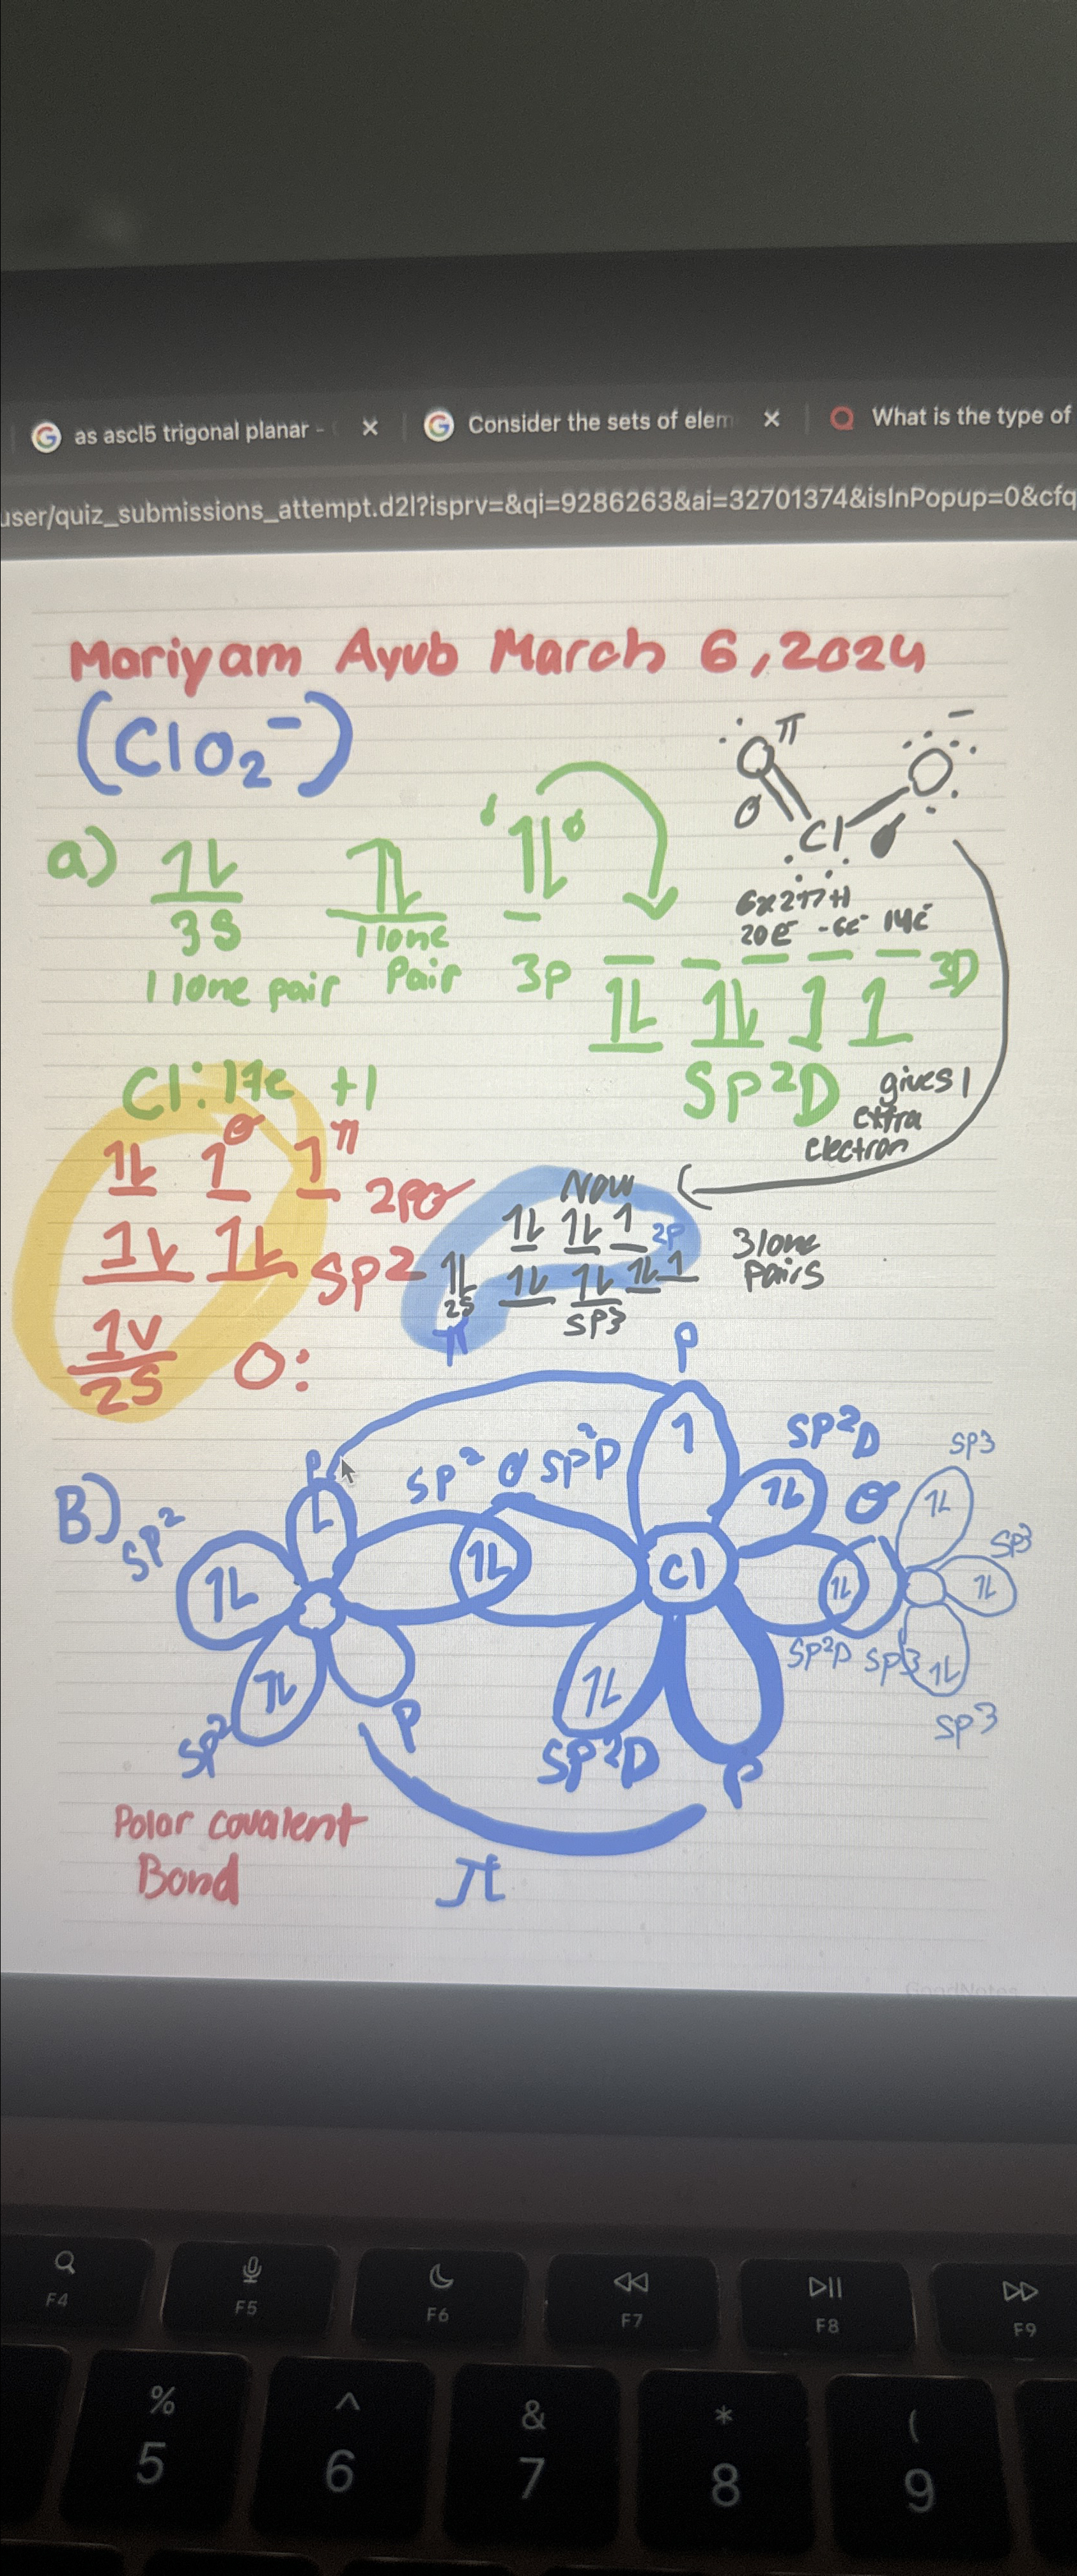 as ascl5 trigonal planar - Consider the sets of elem What is the type of
user/quiz_submissions_attempt.d2l?isprv=&qi=9286263&ai=32701374&isInPopup=0&cfq
Mariyam Ayub March 6, 2024
(ClO₂⁻)
π
O O
σ
Cl
a) 1L 1L 1L
3S
1 lone pair
1 lone Pair
3p
3D
6x2+7+1
20e⁻ -6e⁻ 14e⁻
1L 1L 1 1
SP²D
gives 1 extra electron
Cl: 17e +1
1L 1σ 1π 2p
1L 1L SP2
1L
2S O:
Now
1L 1L 1 2P
1L
2S
1L 1L 1L 1
SP3
3 lone pairs
π
B)
P P
SP² σ SP²D
SP²D
σ
SP3
SP²
1L 1 1L 1L
1L 1L Cl 1L 1L
SP3
SP²D SP3
1L 1L 1L
SP²
P
SP²D
P
SP3
π
Polar covalent
Bond
GoodNotes
F4 F5 F6 F7 F8 F9
% ^ & * (
5 6 7 8 9